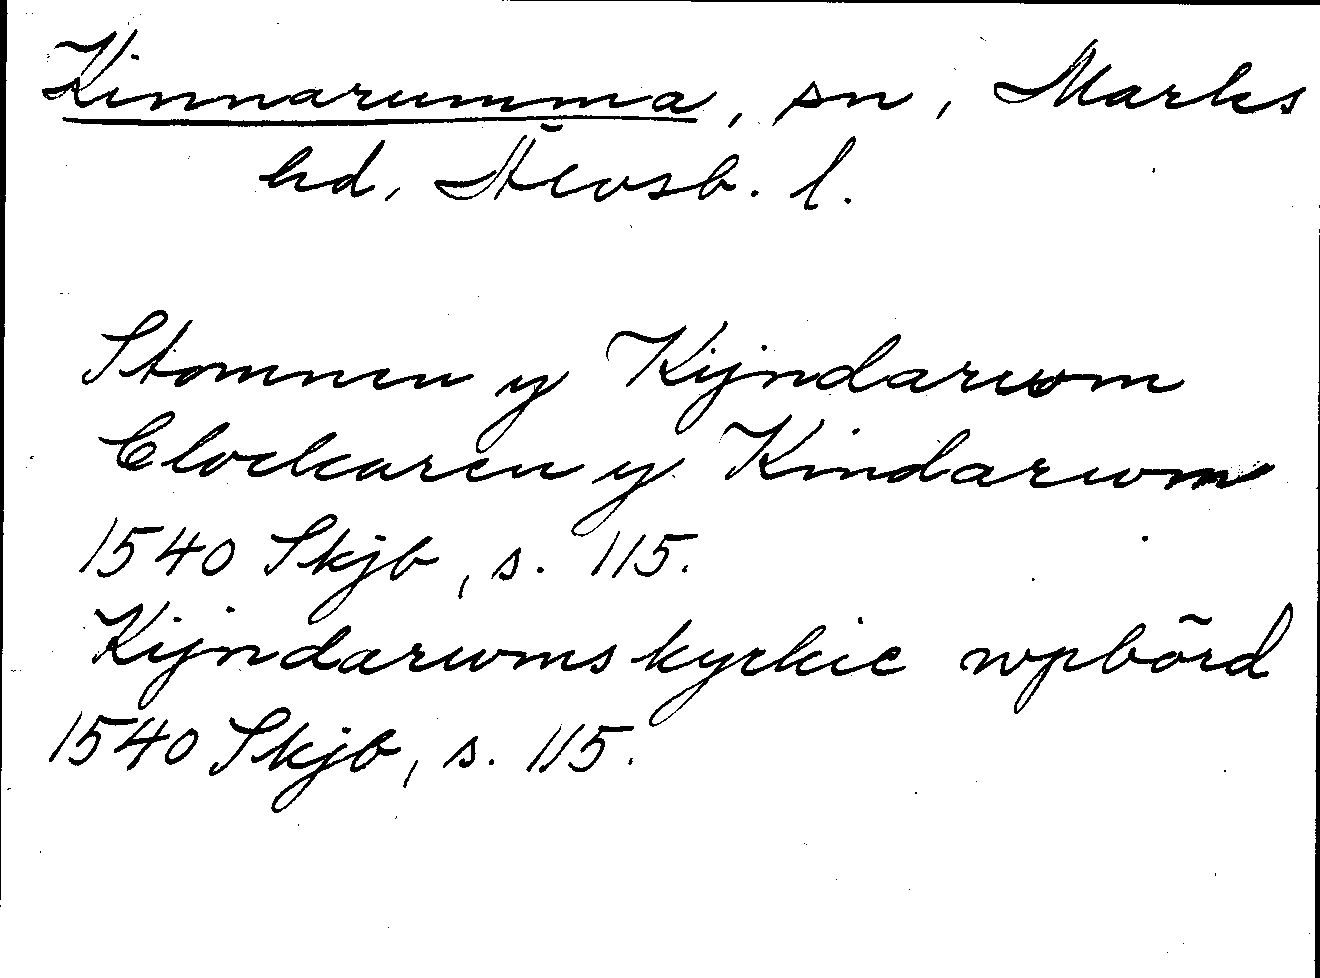 Kinnarumma, sn, Marks
hd, Älvsb. l.
Stomnen y Kijndarwom
Clockaren y Kindarwom
1540 Skjb, s. 115.
Kijndarwoms kyrkie wpbörd
1540 Skjb, s. 115.